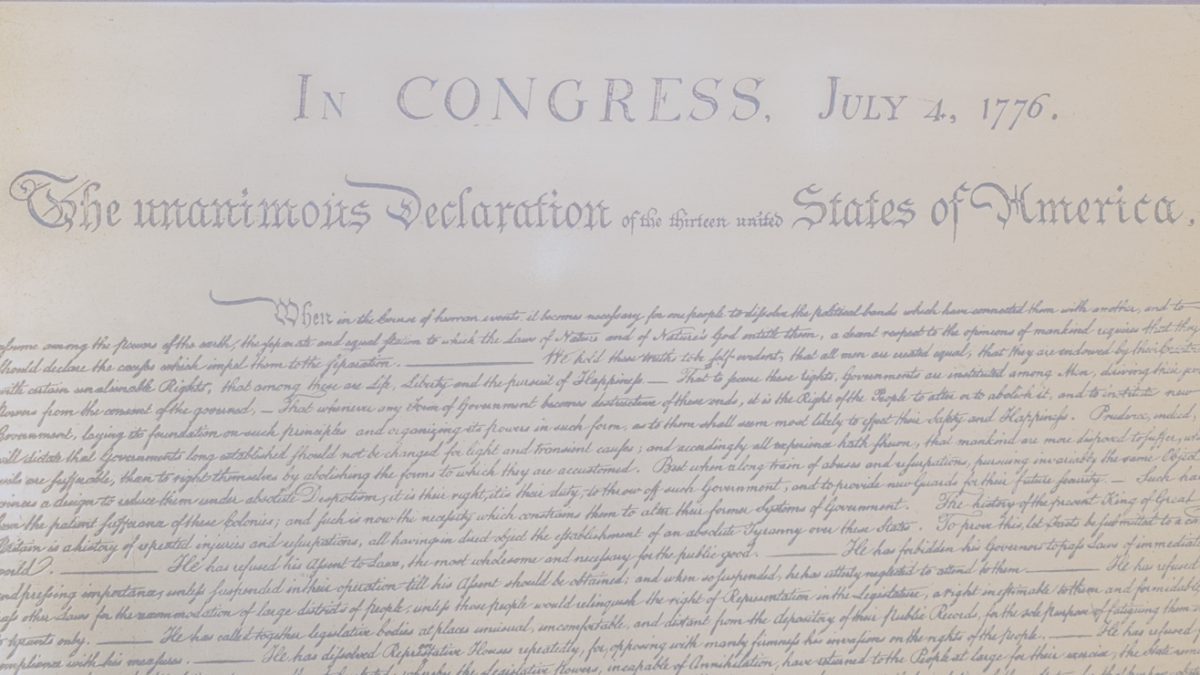 IN CONGRESS, JULY 4, 1776.
The unanimous Declaration of the thirteen united States of America,
When in the Course of human events, it becomes necessary for one people to dissolve the political bands which have connected them with another, and to
assume among the powers of the earth, the separate and equal station to which the Laws of Nature and of Nature's God entitle them, a decent respect to the opinions of mankind requires that they
should declare the causes which impel them to the separation. ——— We hold these truths to be self-evident, that all men are created equal, that they are endowed by their Creator
with certain unalienable Rights, that among these are Life, Liberty and the pursuit of Happiness. — That to secure these rights, Governments are instituted among Men, deriving their just
powers from the consent of the governed, — That whenever any Form of Government becomes destructive of these ends, it is the Right of the People to alter or to abolish it, and to institute new
Government, laying its foundation on such principles and organizing its powers in such form, as to them shall seem most likely to effect their Safety and Happiness. Prudence, indeed,
will dictate that Governments long established should not be changed for light and transient causes; and accordingly all experience hath shewn, that mankind are more disposed to suffer, while
evils are sufferable, than to right themselves by abolishing the forms to which they are accustomed. But when a long train of abuses and usurpations, pursuing invariably the same Object
evinces a design to reduce them under absolute Despotism, it is their right, it is their duty, to throw off such Government, and to provide new Guards for their future security. — Such has
been the patient sufferance of these Colonies; and such is now the necessity which constrains them to alter their former Systems of Government. The history of the present King of Great
Britain is a history of repeated injuries and usurpations, all having in direct object the establishment of an absolute Tyranny over these States. To prove this, let Facts be submitted to a
world. ——— He has refused his Assent to Laws, the most wholesome and necessary for the public good. ——— He has forbidden his Governors to pass Laws of immediate
and pressing importance, unless suspended in their operation till his Assent should be obtained; and when so suspended, he has utterly neglected to attend to them. ——— He has refused
pass other Laws for the accommodation of large districts of people, unless those people would relinquish the right of Representation in the Legislature, a right inestimable to them and formidable
to tyrants only. ——— He has called together legislative bodies at places unusual, uncomfortable, and distant from the depository of their Public Records, for the sole purpose of fatiguing them
compliance with his measures. ——— He has dissolved Representative Houses repeatedly, for opposing with manly firmness his invasions on the rights of the people. ——— He has refused
whereby the Legislative powers, incapable of Annihilation, have returned to the People at large for their exercise; the State